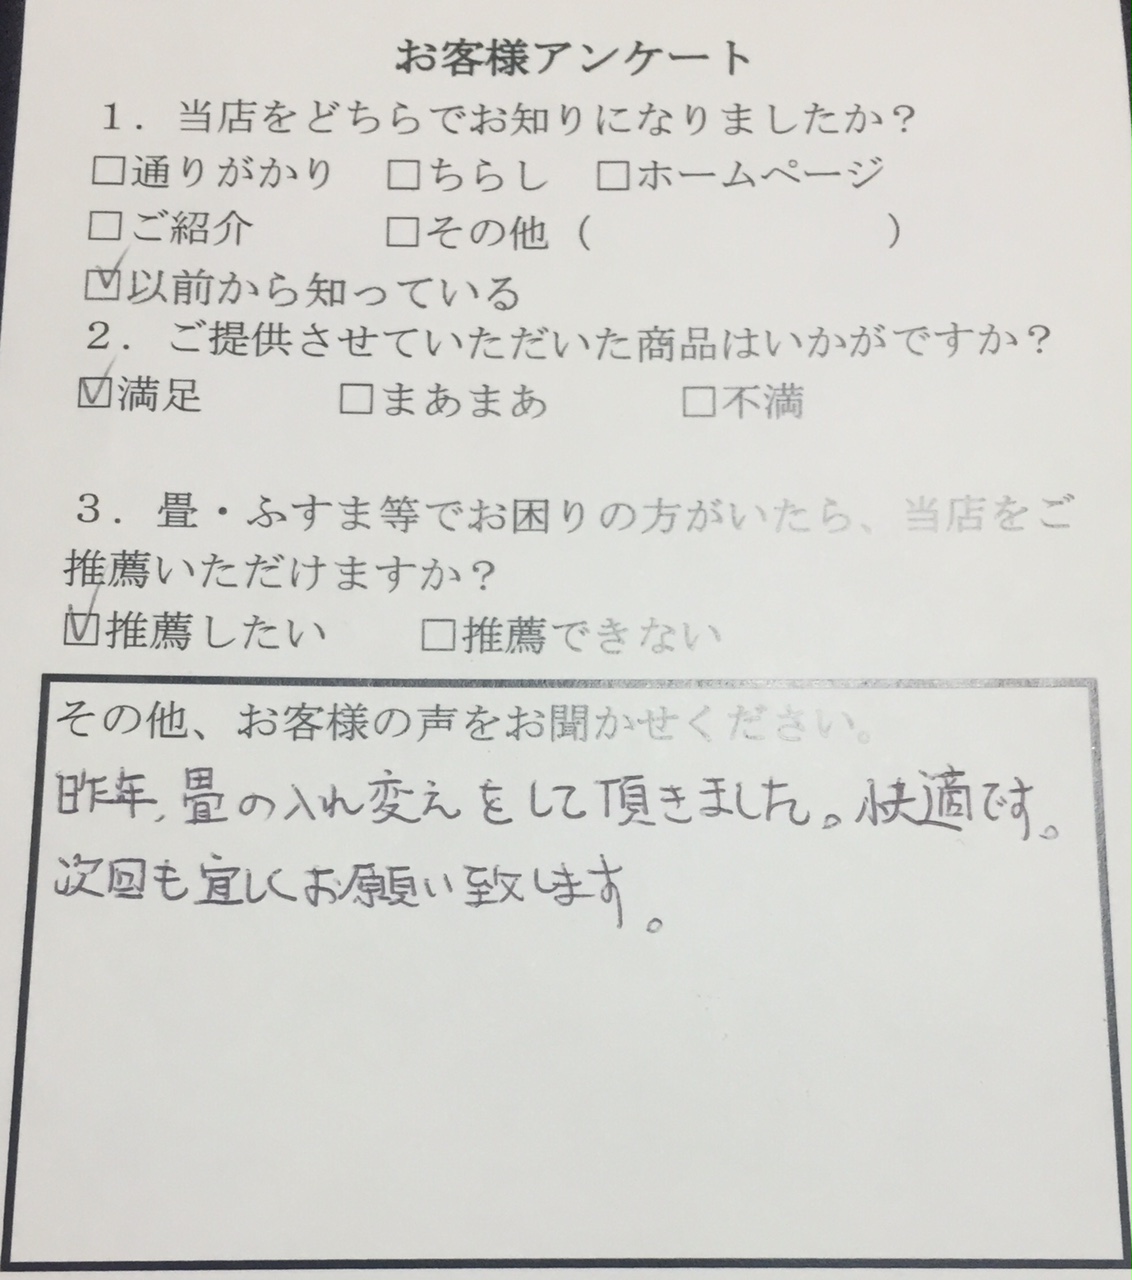 お客様アンケート
１．当店をどちらでお知りになりましたか？
□通りがかり　□ちらし　□ホームページ
□ご紹介　□その他（　　　　　　　）
☑以前から知っている
２．ご提供させていただいた商品はいかがですか？
☑満足　□まあまあ　□不満
３．畳・ふすま等でお困りの方がいたら、当店をご
推薦いただけますか？
☑推薦したい　□推薦できない
その他、お客様の声をお聞かせください。
昨年、畳の入れ変えをして頂きました。快適です。
次回も宜しくお願い致します。